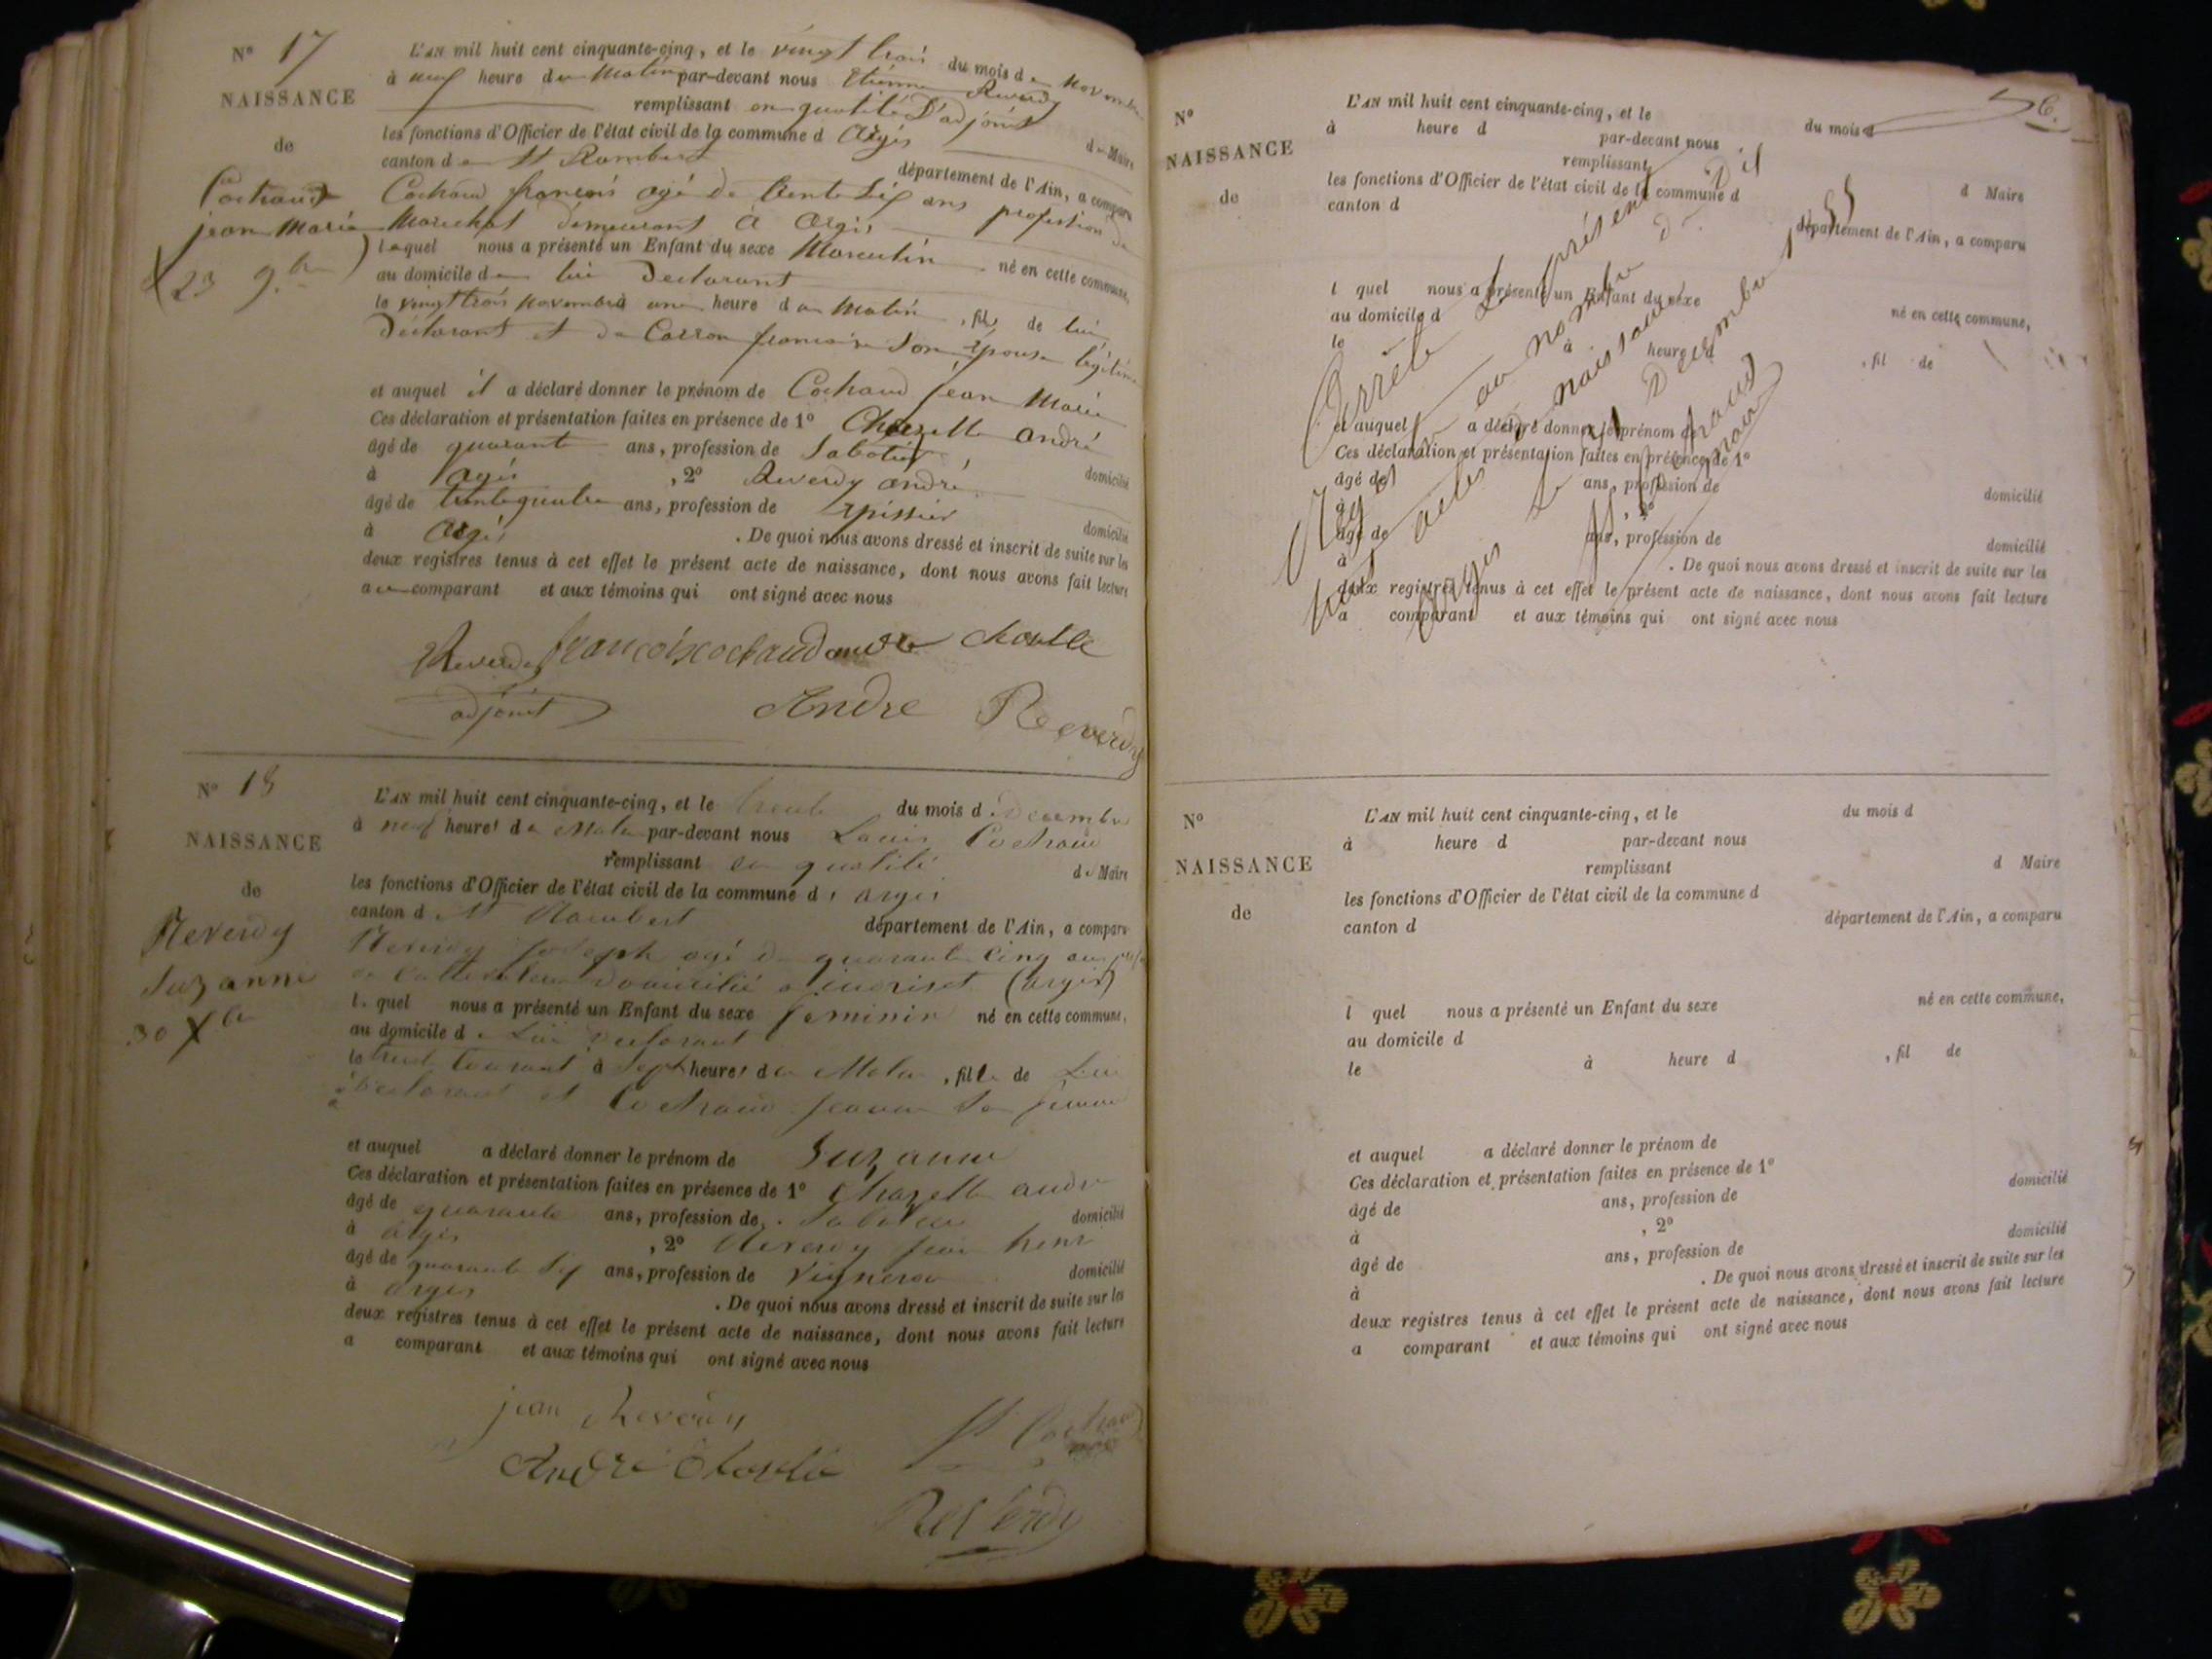 N° 17
NAISSANCE
de
Cochaud
jean Marie
23 9.bre
L'AN mil huit cent cinquante-cinq, et le vingt trois du mois de Novembre
à neuf heure du Matin par-devant nous Etienne Reverdy
remplissant en qualité D'adjoint
les fonctions d'Officier de l'état civil de la commune d Argis de Maire
canton de St Rambert département de l'Ain, a comparu
Cochaud françois agé de trente six ans profession de
Marechal demeurant à Argis
lequel nous a présenté un Enfant du sexe Masculin né en cette commune,
au domicile de lui Declarant
le vingt trois Novembre à une heure du Matin, fils de lui
Declarant et de Carron françoise son épouse légitime
et auquel il a déclaré donner le prénom de Cochaud jean Marie
Ces déclaration et présentation faites en présence de 1° Chazelle andré
âgé de quarante ans, profession de Sabotier domicilié
à argis, 2° Reverdy andré
âgé de trente quatre ans, profession de Epissier domicilié
à Argis. De quoi nous avons dressé et inscrit de suite sur les
deux registres tenus à cet effet le présent acte de naissance, dont nous avons fait lecture
au comparant et aux témoins qui ont signé avec nous
Reverdy françois cochaud andre
adjoint Andre Reverdy
N° 18
NAISSANCE
de
Reverdy
Suzanne
30 Xbre
L'AN mil huit cent cinquante-cinq, et le trente du mois de Décembre
à neuf heures du Matin par-devant nous Louis Cochaud
remplissant en qualité de Maire
les fonctions d'Officier de l'état civil de la commune d'argis
canton d St Rambert département de l'Ain, a comparu
Reverdy joseph agé de quarante cinq ans
cultivateur Domicilié (argis)
le quel nous a présenté un Enfant du sexe feminin né en cette commune,
au domicile de Lui Declarant
le trente courant à Sept heures du Matin, fille de Lui
Declarant et Cochaud jeanne Sa femme
et auquel a déclaré donner le prénom de Suzanne
Ces déclaration et présentation faites en présence de 1° Chazelle andré
âgé de quarante ans, profession de Sabotier domicilié
à argis, 2° Reverdy jean
âgé de quarante six ans, profession de Vigneron domicilié
à argis. De quoi nous avons dressé et inscrit de suite sur les
deux registres tenus à cet effet le présent acte de naissance, dont nous avons fait lecture
a comparant et aux témoins qui ont signé avec nous
jean Reverdy
Cochaud
André
Reverdy
N°
NAISSANCE
de
L'AN mil huit cent cinquante-cinq, et le du mois d
à heure d par-devant nous
remplissant
les fonctions d'Officier de l'état civil de la commune d d Maire
canton d département de l'Ain, a comparu
l quel nous a présenté un Enfant du sexe né en cette commune,
au domicile d
le à heure d, fil de
et auquel a déclaré donner le prénom de
Ces déclaration et présentation faites en présence de 1°
âgé de ans, profession de domicilié
à, 2°
âgé de ans, profession de domicilié
à. De quoi nous avons dressé et inscrit de suite sur les
deux registres tenus à cet effet le présent acte de naissance, dont nous avons fait lecture
a comparant et aux témoins qui ont signé avec nous
Arrêté le présent
au nombre de Dix
actes de naissance
Argis le 31 Decembre 1855
Cochaud
N°
NAISSANCE
de
L'AN mil huit cent cinquante-cinq, et le du mois d
à heure d par-devant nous
remplissant d Maire
les fonctions d'Officier de l'état civil de la commune d
canton d département de l'Ain, a comparu
l quel nous a présenté un Enfant du sexe né en cette commune,
au domicile d
le à heure d, fil de
et auquel a déclaré donner le prénom de
Ces déclaration et présentation faites en présence de 1°
âgé de ans, profession de domicilié
à, 2°
âgé de ans, profession de domicilié
à. De quoi nous avons dressé et inscrit de suite sur les
deux registres tenus à cet effet le présent acte de naissance, dont nous avons fait lecture
a comparant et aux témoins qui ont signé avec nous